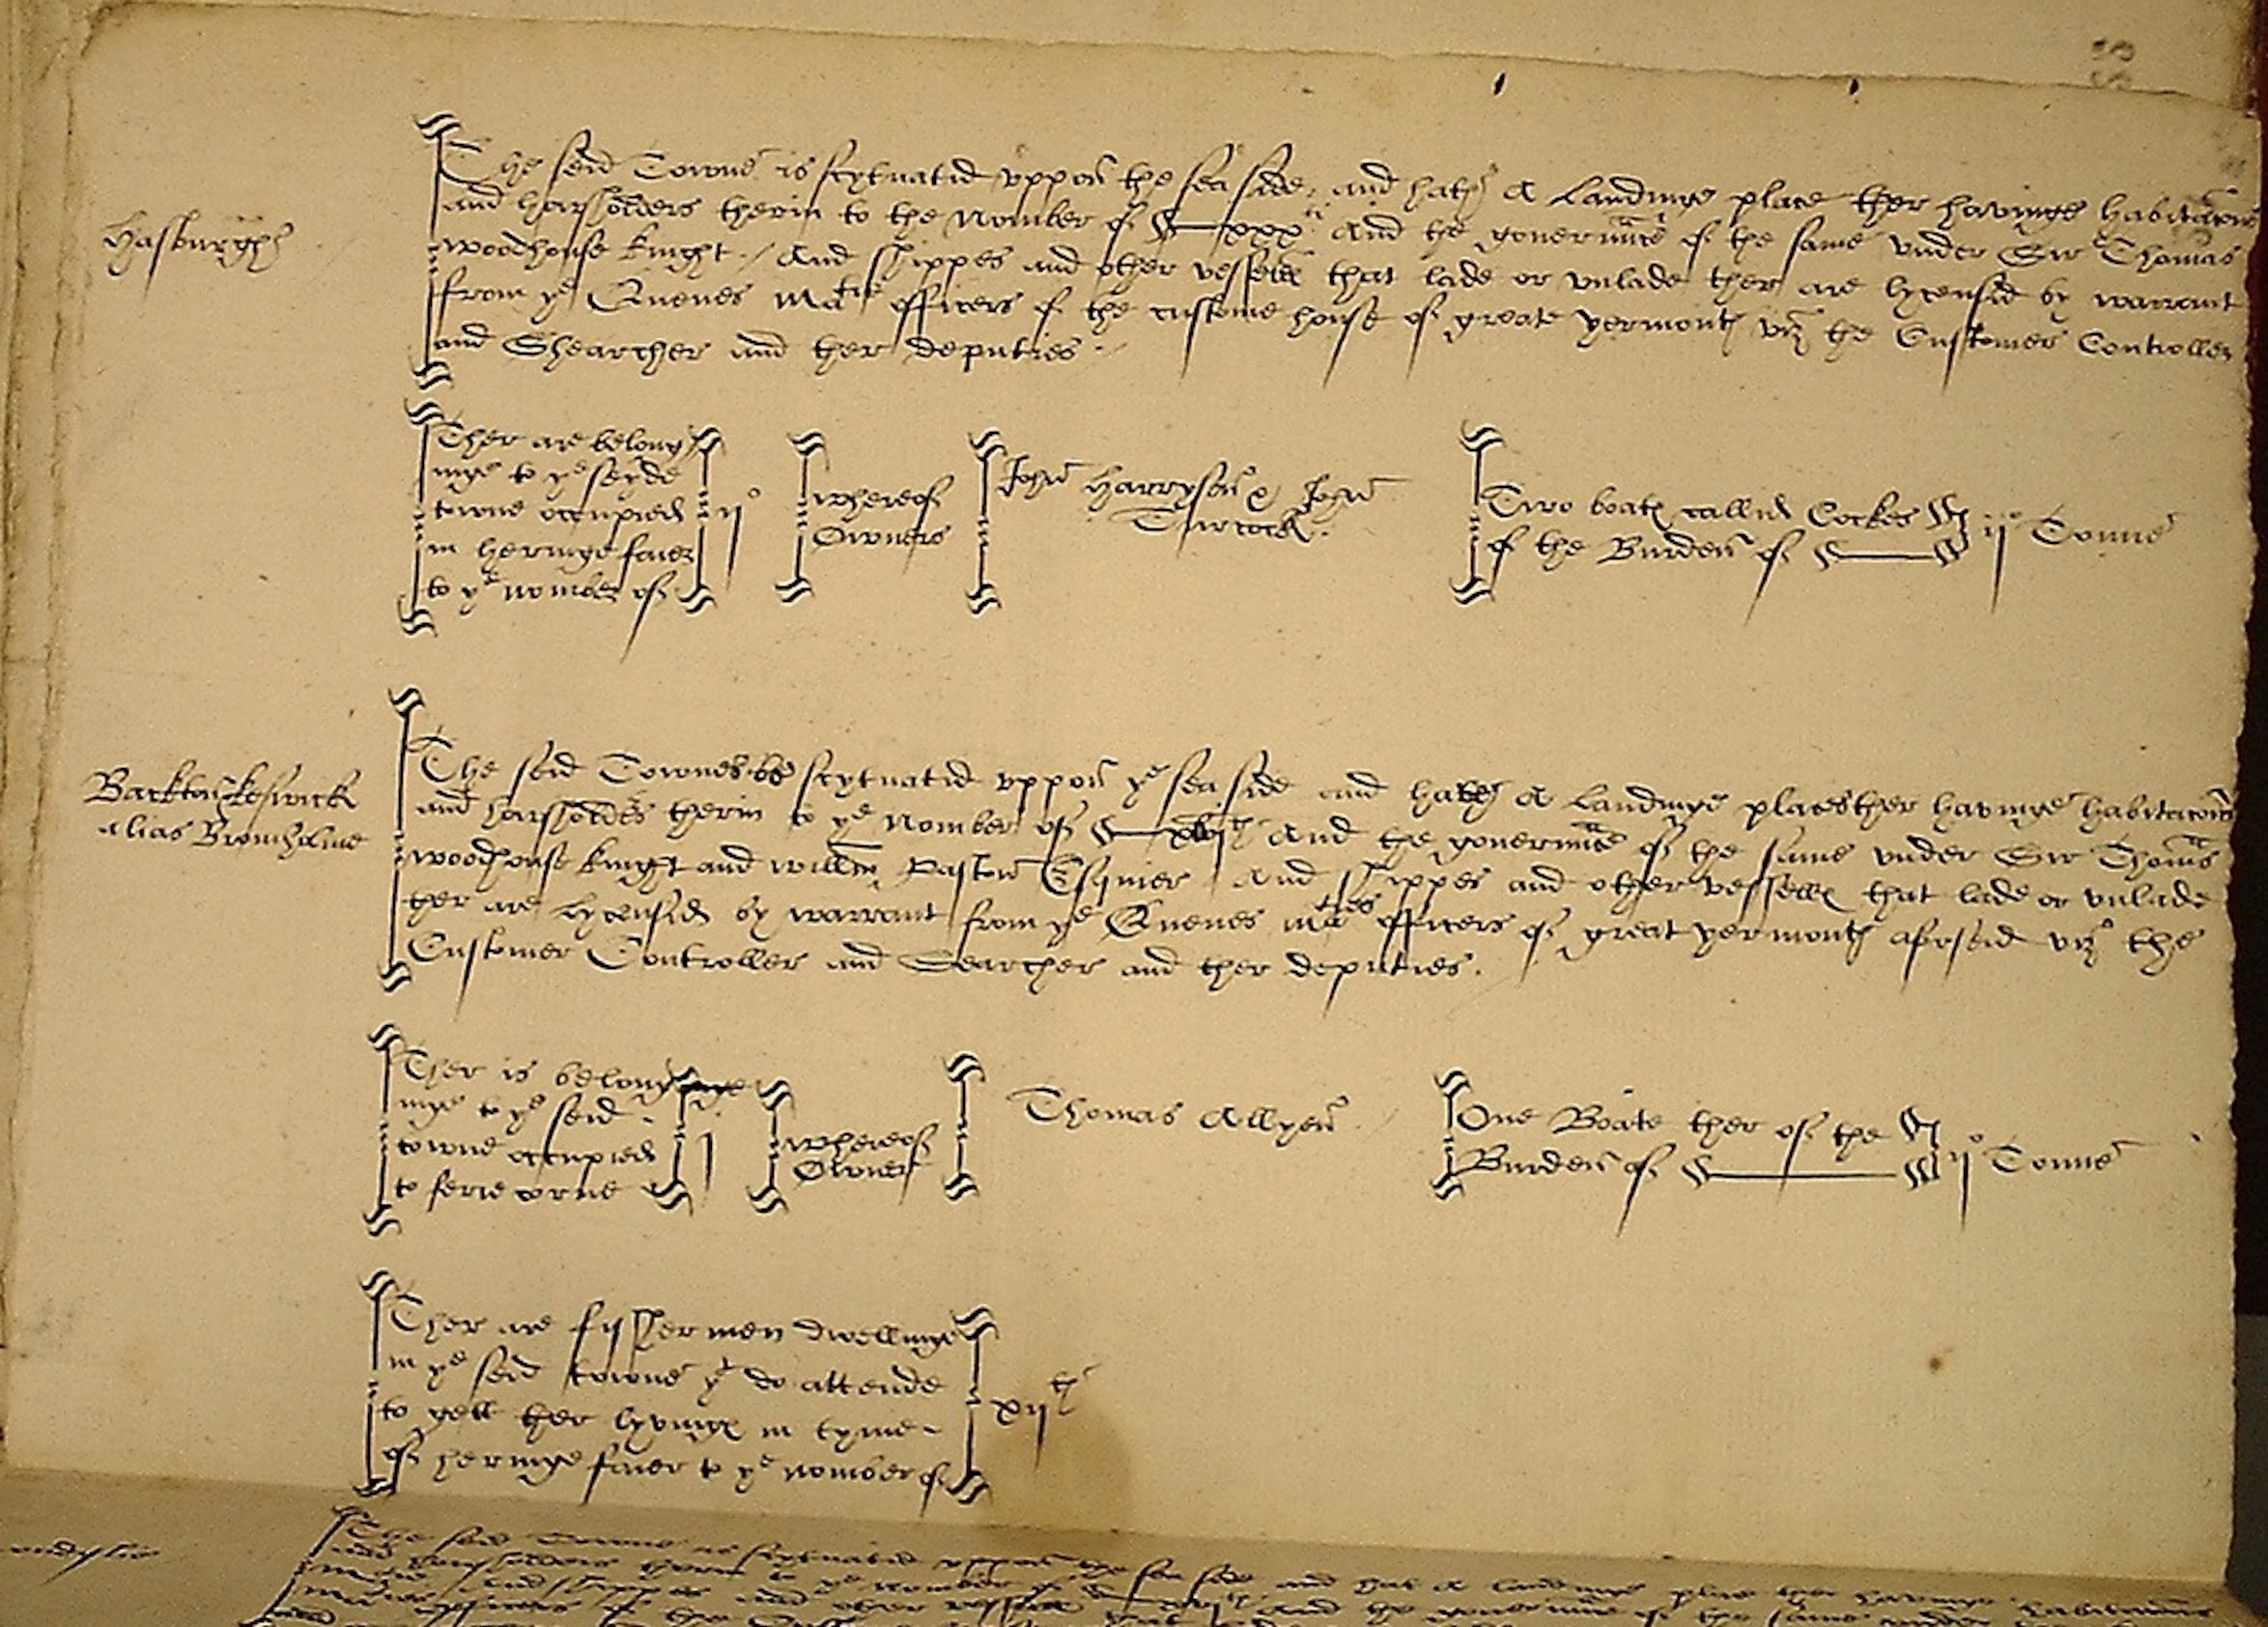 Hasburghe
The seid Towne is scytuatid vppon the sea side, and hath A Landinge place ther havinge habitacions
and howsholders therin to the Nomber of xxx ti And the governance of the same vnder Sir Thomas
woodhouse knight. / And shippes and other vesselles that lade or vnlade ther are lycensid by warrant
from ye Quenes Maties officers of the custome house of greate yermouth viz the Customer Controller
and Shearcher and ther deputies.
Ther are belong
inge to ye seyde
towne occupied
in heringe faier
to ye nomber of
ij o
whereof
Owners
John Harryson & John
Turcock.
Two boates callid Cockes
of the Burden of
ij o Tonne
Barkton Keswick
alias Bromholme
The seid Townes be scytuatid vppon ye sea side and have A Landinge places ther havinge habitacions
and howsholders therin to ye Nomber of And the governance of the same vnder Sir Thomas
woodhouse knight and willm Paston Esquier / And shippes and other vesselles that lade or vnlade
ther are lycensid by warrant from ye Quenes Maties officers of great yermouth aforseid viz the
Customer Controller and Searcher and ther deputies.
Ther is belong
inge to ye seid
towne occupied
to ferie corne
j
whereof
Owner
Thomas Allyen
One Boate ther of the
Burden of
ij o Tonne
Ther are fyssher men dwellinge
in ye seid towne yt do attende
to gett ther lyvinges in tyme
of heringe faier to ye nomber of
xij th
The seid Towne is scytuatid vppon the sea side and hat A Landinge place ther havinge habitacions
and howsholders therin to ye nomber of And the governance of the same vnder
And shippes and other vesselles that
officers of the